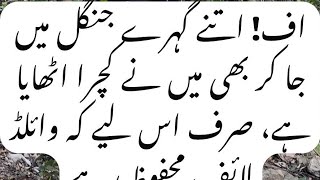 اف! اتنے گہرے جنگل میں
جا کر بھی میں نے کچرا اٹھایا
ہے، صرف اس لیے کہ وائلڈ
لائف محفوظ رہے